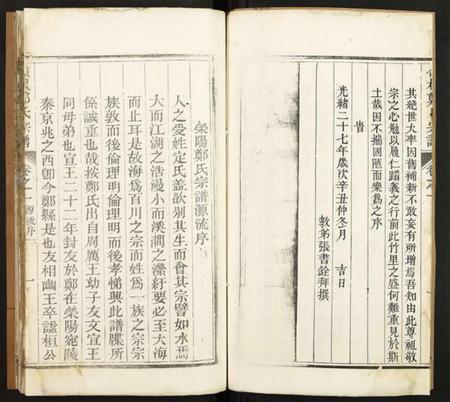 其絶世大率因舊補新不敢妄有所增焉吾知由此尊祖敬
宗之心勉以履仁蹈義之行前此竹里之盛何難重見於斯
土哉因不揣固陋而樂爲之序
旹
光緒二十七年歲次辛丑仲冬月 吉日
教弟張書銓拜撰
滎陽鄭氏宗譜源流序
人之愛姓定氏蓋欲别其生而會其宗譬如水焉
大而江湖之浩漫小而溪澗之瀠紆要必至大海
而止耳是故海爲百川之宗而姓爲一族之宗宗
族敦而後倫理明倫理明而後孝悌興此譜牒所
係誠重也哉按鄭氏出自周厲王幼子友文宣王
同母弟也宣王二十二年封友於鄭在滎陽宛陵
秦京兆之西卽今鄭縣是也友相幽王卒諡桓公
鄭氏宗譜
卷之一
源流序
一